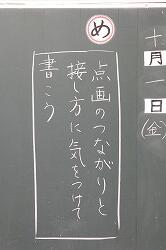 め
点画のつながりと
接し方に気をつけて
書こう
十一月一日(金)